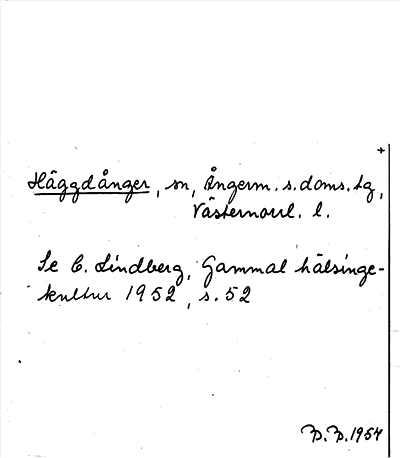 +
Häggdånger, sn, Ångerm. s. doms. tg,
Västernorrl. l.
Se C. Lindberg, Gammal hälsinge-
kultur 1952, s. 52
B. B. 1954